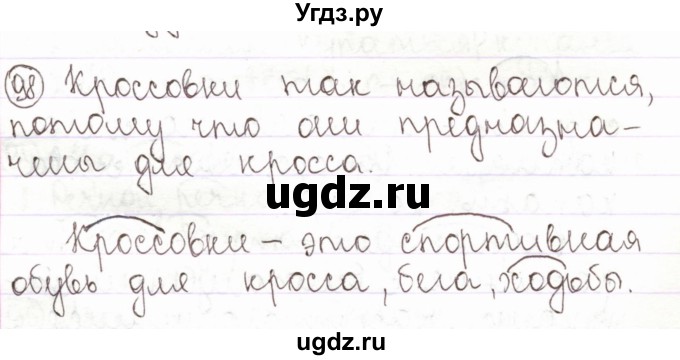 Угдз.ру
98 Кроссовки так называются,
потому что они предназна-
чены для кросса.
ugdz.ru
Кроссовки – это спортивная
обувь для кросса, бега, ходьбы.
ugdz.ru